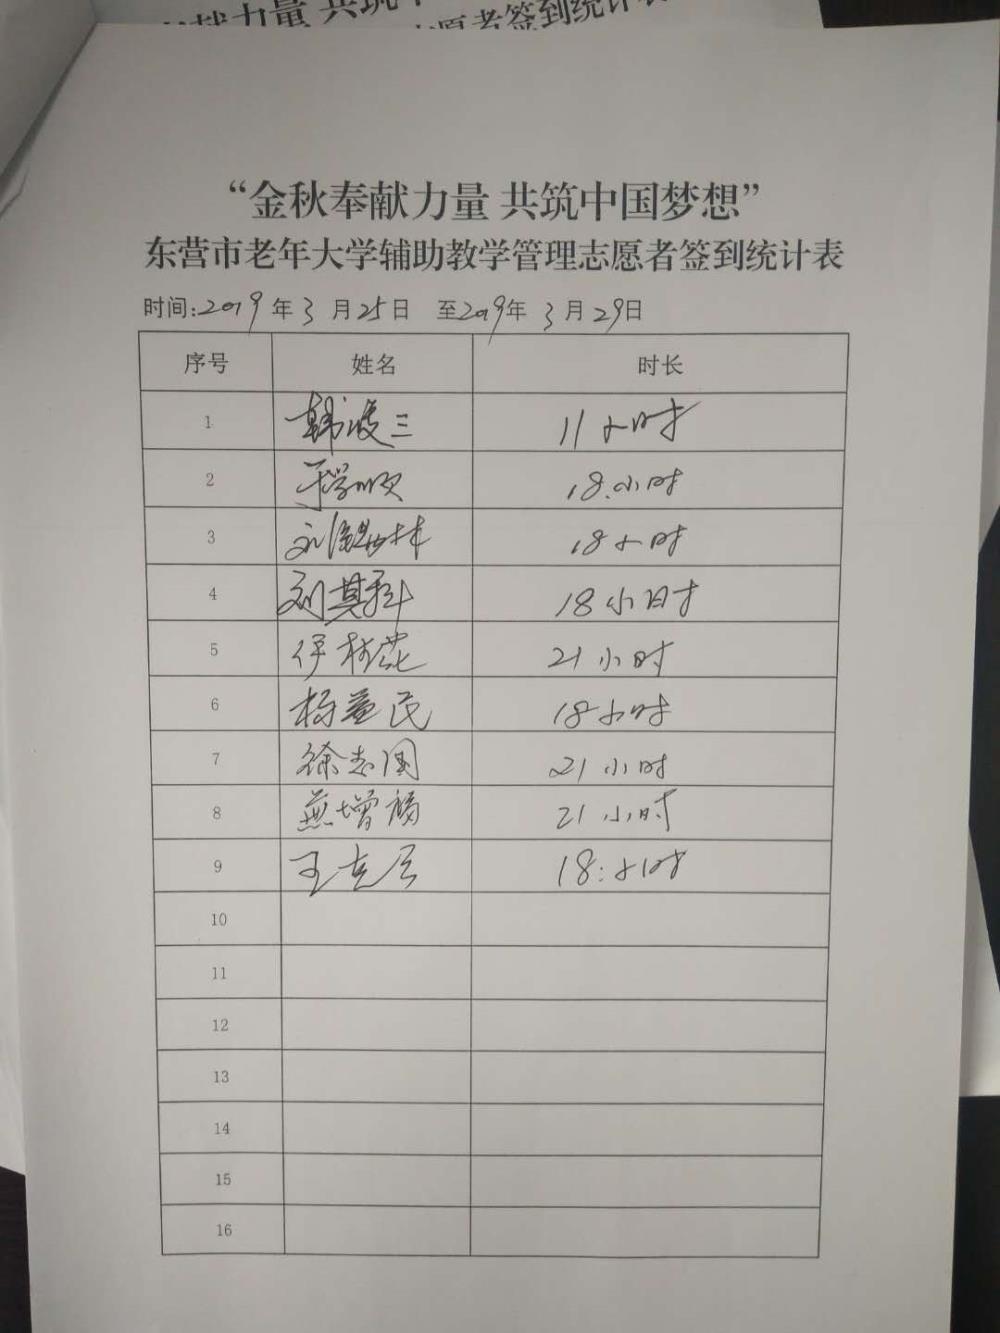 “金秋奉献力量 共筑中国梦想”
东营市老年大学辅助教学管理志愿者签到统计表
时间:2019年3月25日 至2019年3月29日
序号 姓名 时长
1 韩俊三 11小时
2 于学顺 18小时
3 刘 林 18小时
4 刘其科 18小时
5 伊树 21小时
6 杨益民 18小时
7 徐志国 21小时
8 燕增福 21小时
9 王 18小时
10
11
12
13
14
15
16